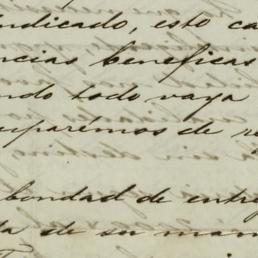 indicado, esto ca
ncias beneficas
ndo todo vaya
uparémos de re
bondad de entre
da de su man